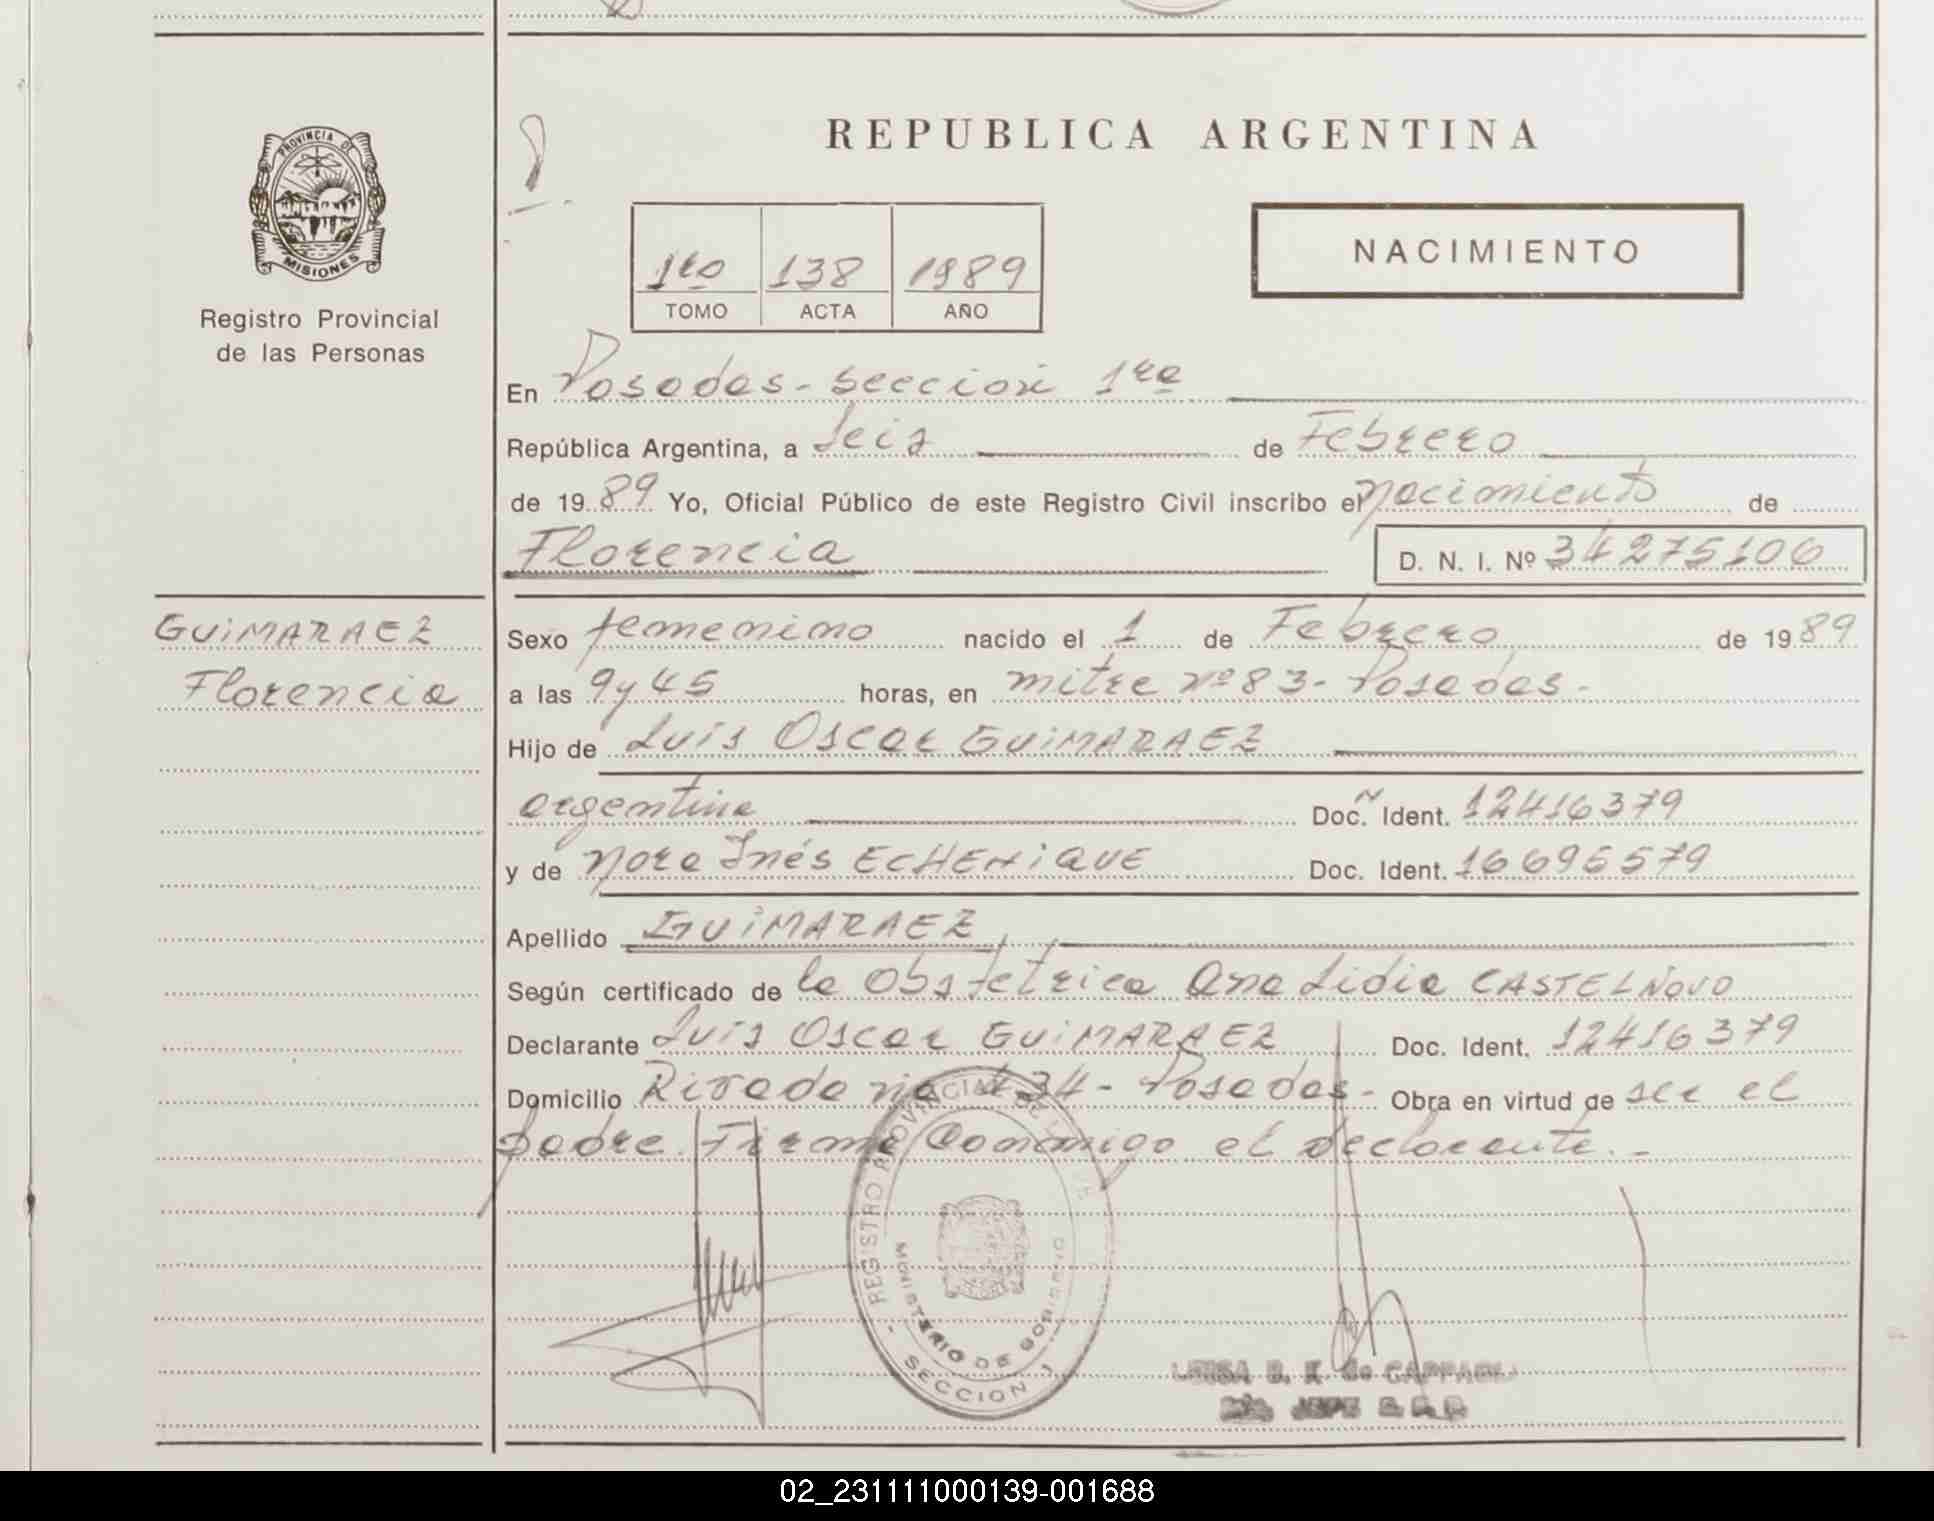 PROVINCIA DE
MISIONES
Registro Provincial
de las Personas
REPUBLICA ARGENTINA
NACIMIENTO
1ro 138 1989
TOMO ACTA AÑO
En Posadas - Sección 1ra
República Argentina, a Seis de Febrero
de 1989 Yo, Oficial Público de este Registro Civil inscribo el nacimiento de
Florencia D. N. I. Nº 34275106
GUIMARAEZ
Florencia
Sexo femenino nacido el 1 de Febrero de 1989
a las 9 y 45 horas, en mitre nº 83 - Posadas -
Hijo de Luís Oscar GUIMARAEZ
argentina Doc. Ident. 12416379
y de Nora Inés ECHENiQUE Doc. Ident. 16695579
Apellido GUIMARAEZ
Según certificado de la Obstetrica Ana Lidia CASTELNOVO
Declarante Luís Oscar GUIMARAEZ Doc. Ident. 12416379
Domicilio Rivadavia 434 - Posadas - Obra en virtud de ser el
padre. Firma Conmigo el declarante. -
REGISTRO PROVINCIAL DE
MINISTERIO DE GOBIERNO
- SECCION 1
LUISA B. K. de
JEFE
02_231111000139-001688